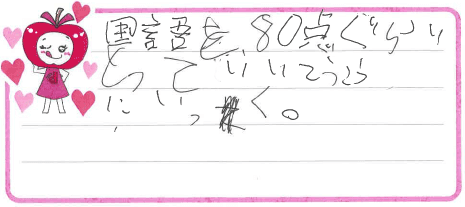 国語を80点ぐらい
とっていいてつだい
にいっく。